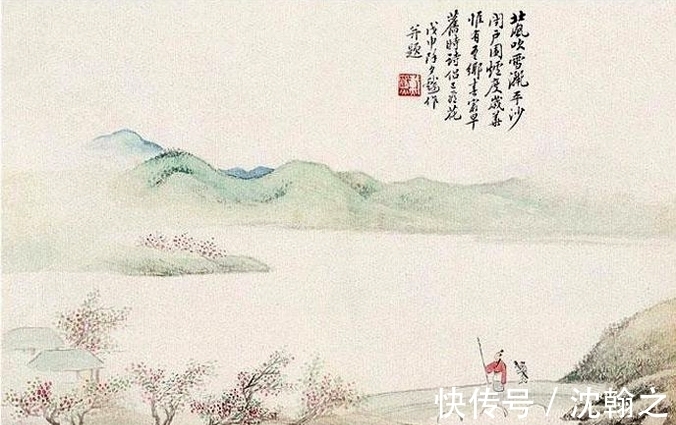 北風吹雪灑平沙
閉戶圍爐度歲華
惟有吾鄉春最早
舊時詩侶已花
戊申除夕作
并題
快传号 / 沈翰之